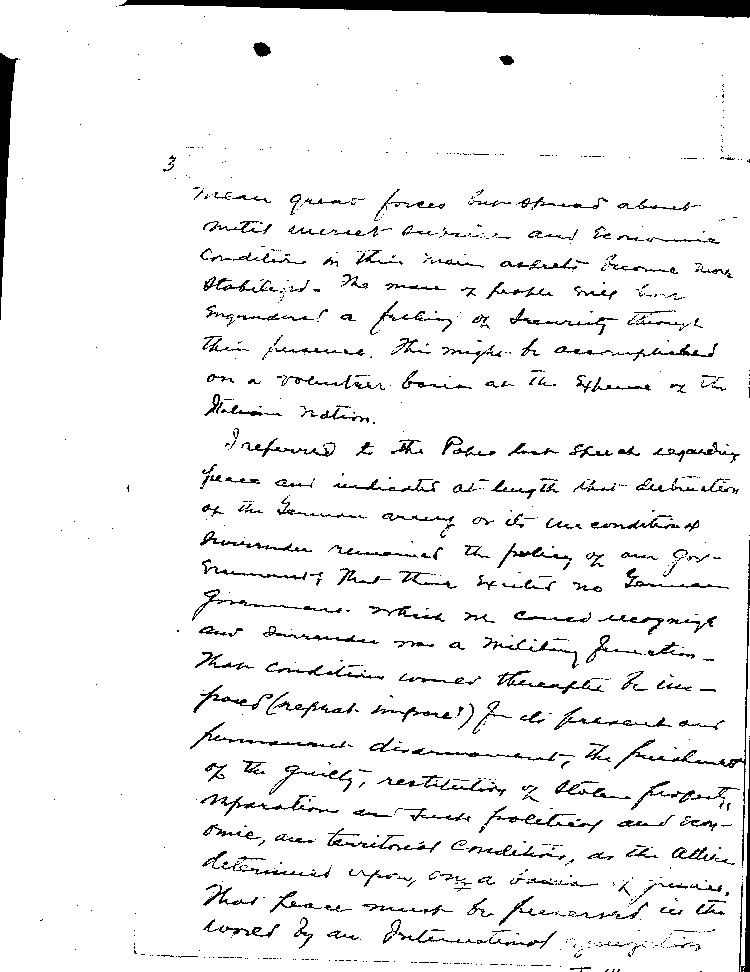 3
mean great forces but spread about
until unrest subsides and Economic
Condition in their main aspects become more
Stabilized. The mass of people will have
Engendered a feeling of Security through
their presence. This might be accomplished
on a volunteer basis at the Expense of the
Italian Nation.
I referred to the Popes last Speech regarding
peace and indicated at length that destruction
of the German army or its unconditional
Surrender remained the policy of our Gov-
ernments; That there Existed no German
Government which we could recognize
and Surrender was a Military function –
That conditions would thereafter be im-
posed (repeat imposed) for its present and
permanent disarmament, the punishment
of the guilty, restitution of Stolen property,
reparation and such political and Econ-
omic, and territorial Conditions, as the Allies
determined upon, on a basis of justice.
That peace must be preserved in the
world by an International organization